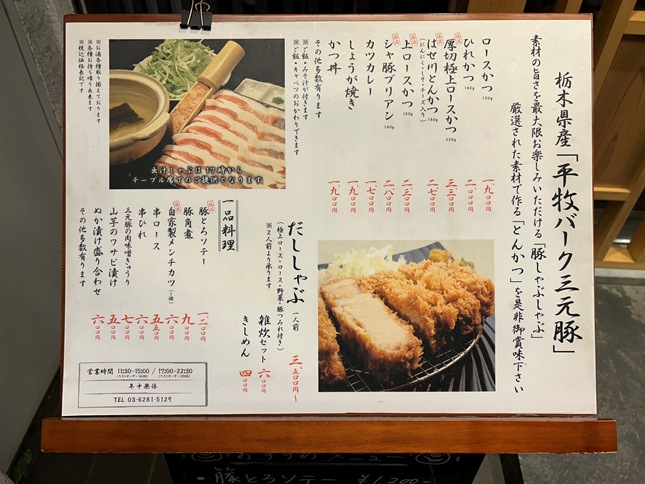 栃木県産「平牧バーク三元豚」
素材の旨さを最大限お楽しみいただける「豚しゃぶしゃぶ」
厳選された素材で作る「とんかつ」を是非御賞味下さい
ロースかつ 130g 一九〇〇円
ひれかつ 140g 二一〇〇円
厚切極上ロースかつ 220g 三三〇〇円
はせ川とんかつ 180g 二七〇〇円
(にんにく・しそ・チーズ入り)
上ロースかつ 180g 二八〇〇円
シャ豚ブリアン 140g 二八〇〇円
カツカレー 一七〇〇円
しょうが焼き 一九〇〇円
かつ丼 一九〇〇円
その他多数有ります
※ご飯・みそ汁が付きます
※ご飯・キャベツのおかわりできます
出汁しゃぶは17時から
テーブル席でのご提供となります
※お酒各種取り揃えております
※各種お持ち帰り出来ます
※税込価格表記です
だししゃぶ 一人前 三、五〇〇円〜
(極上ロース・ロース・野菜・豚つみれ付き)
※2人前より承ります
雑炊セット 六〇〇円
きしめん 四〇〇円
一品料理
豚とろソテー 一、二〇〇円
豚角煮 九〇〇円
自家製メンチカツ(一個) 六〇〇円
串ロース 五五〇円
串ひれ 六〇〇円
三元豚の肉味噌きゅうり 七〇〇円
山芋のワサビ漬け 五五〇円
ぬか漬け盛り合わせ 六〇〇円
その他多数有ります
営業時間 11:30-15:00 / 17:00-22:30
年中無休
TEL 03-6281-5129
おすすめメニュー
・豚とろソテー ¥1,200-